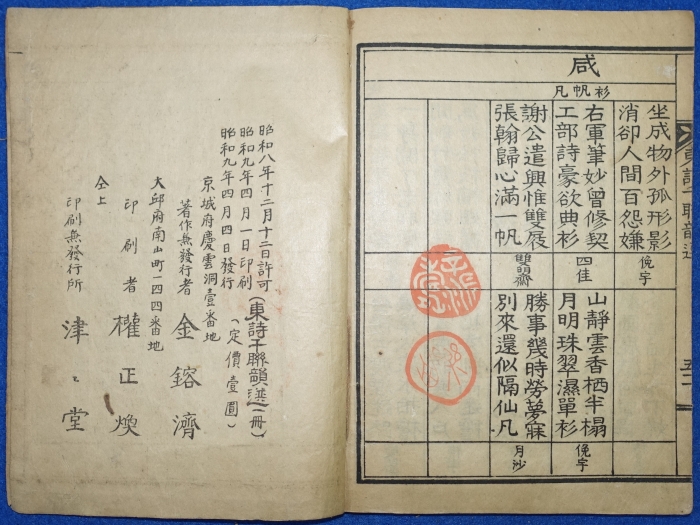 咸
杉帆凡
坐成物外孤形影
消卻人間百怨嫌
俛宇
右軍筆妙曾修契
工部詩豪欲典衫
四佳
謝公遣興惟雙屐
張翰歸心滿一帆
雙明齋
山靜雲香栖半榻
月明珠翠濕單衫
俛宇
勝事幾時勞夢寐
別來還似隔仙凡
月沙
五十
昭和八年十二月十二日許可
昭和九年四月一日印刷
昭和九年四月四日發行
(東詩千聯韻選一冊)
(定價壹圓)
京城府慶雲洞壹番地
著作兼發行者 金鎔濟
大邱府南山町一四四番地
印刷者 權正煥
仝上
印刷兼發行所 津々堂